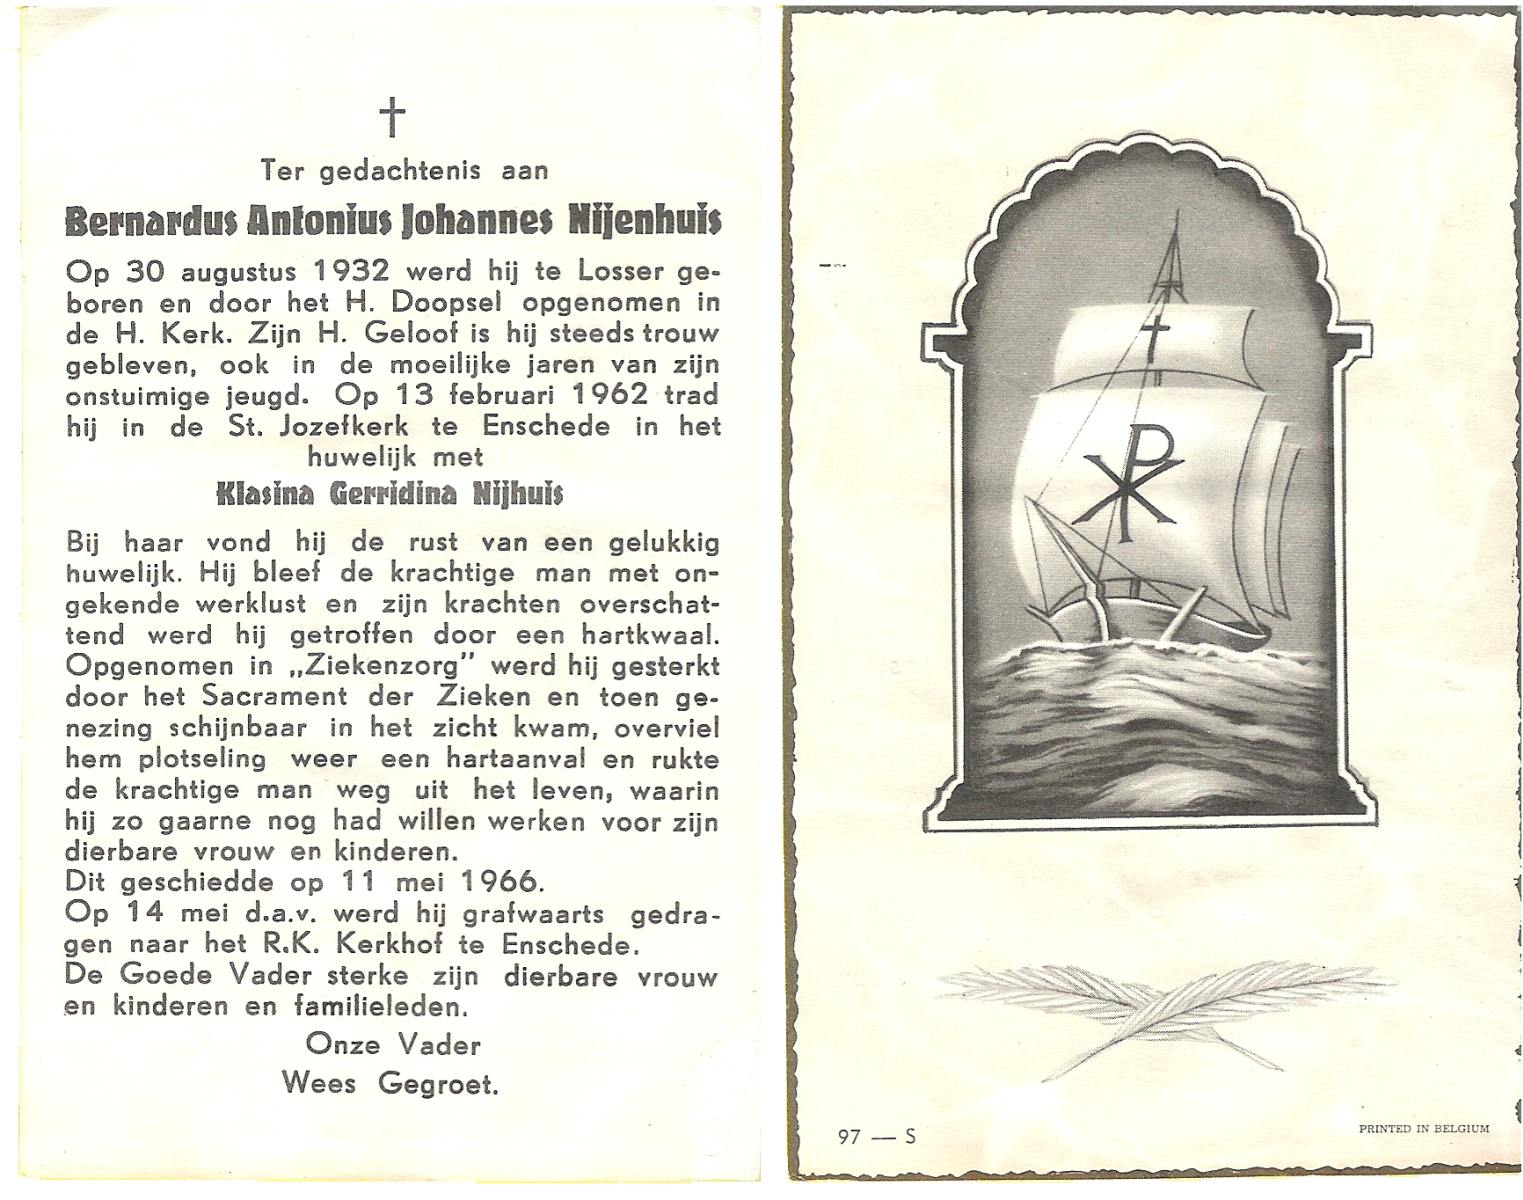 Ter gedachtenis aan
Bernardus Antonius Johannes Nijenhuis
Op 30 augustus 1932 werd hij te Losser ge-
boren en door het H. Doopsel opgenomen in
de H. Kerk. Zijn H. Geloof is hij steeds trouw
gebleven, ook in de moeilijke jaren van zijn
onstuimige jeugd. Op 13 februari 1962 trad
hij in de St. Jozefkerk te Enschede in het
huwelijk met
Klasina Gerridina Nijhuis
Bij haar vond hij de rust van een gelukkig
huwelijk. Hij bleef de krachtige man met on-
gekende werklust en zijn krachten overschat-
tend werd hij getroffen door een hartkwaal.
Opgenomen in „Ziekenzorg” werd hij gesterkt
door het Sacrament der Zieken en toen ge-
nezing schijnbaar in het zicht kwam, overviel
hem plotseling weer een hartaanval en rukte
de krachtige man weg uit het leven, waarin
hij zo gaarne nog had willen werken voor zijn
dierbare vrouw en kinderen.
Dit geschiedde op 11 mei 1966.
Op 14 mei d.a.v. werd hij grafwaarts gedra-
gen naar het R.K. Kerkhof te Enschede.
De Goede Vader sterke zijn dierbare vrouw
en kinderen en familieleden.
Onze Vader
Wees Gegroet.
97 — S
PRINTED IN BELGIUM